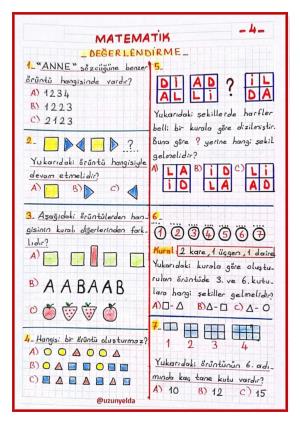 MATEMATİK
- 4 -
DEĞERLENDİRME
1- "ANNE" sözcüğüne benzer
örüntü hangisinde vardır?
A) 1234
B) 1223
C) 2123
2-
?
Yukarıdaki örüntü hangisiyle
devam etmelidir?
A)
B)
C)
3- Aşağıdaki örüntülerden han-
gisinin kuralı diğerlerinden fark-
lıdır?
A)
B)
AABAAB
C)
4- Hangisi bir örüntü oluşturmaz?
A)
B)
C)
5.
Dİ AD ? İL
AL Lİ DA
Yukarıdaki şekillerde harfler
belli bir kurala göre dizilmiştir.
Buna göre ? yerine hangi şekil
gelmelidir?
A) LA B) İD C) Lİ
İD LA AD
6.
1 2 3 4 5 6 7
Kural: 2 kare, 1 üçgen, 1 daire
Yukarıdaki kurala göre oluştu-
rulan örüntüde 3. ve 6. kutu-
lara hangi şekiller gelmelidir?
A)
B)
C)
7-
1 2 3 4
Yukarıdaki örüntünün 6. adı-
mında kaç tane kutu vardır?
A) 10 B) 12 C) 15
@uzunyelda